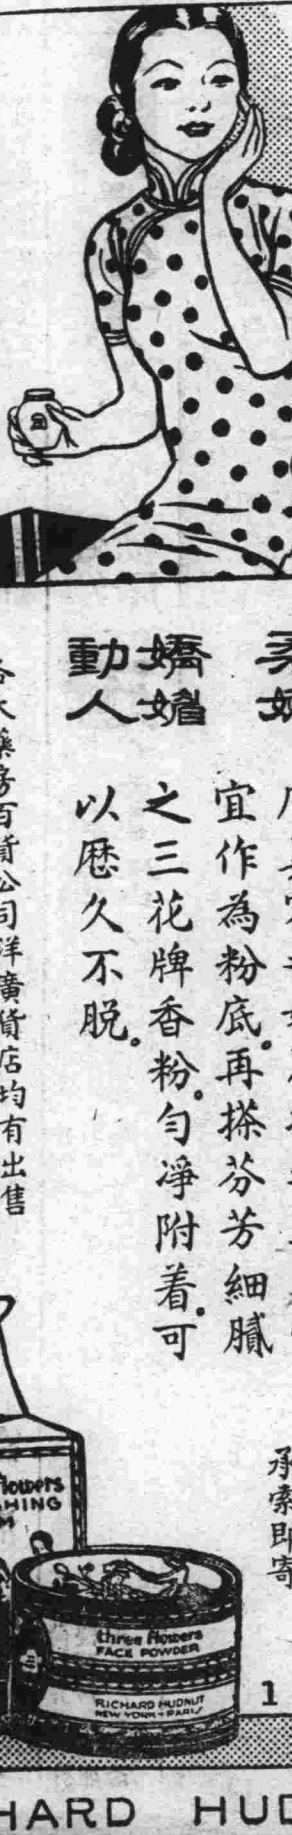 宜作為粉底。再搽芬芳細膩
之三花牌香粉。勻凈附着。可
以歷久不脱。
嬌媚
動人
大藥房百貨公司洋廣貨店均有出售
承索即寄
three flowers
FACE POWDER
RICHARD HUDNUT
NEW YORK + PARIS
1
HARD HUD